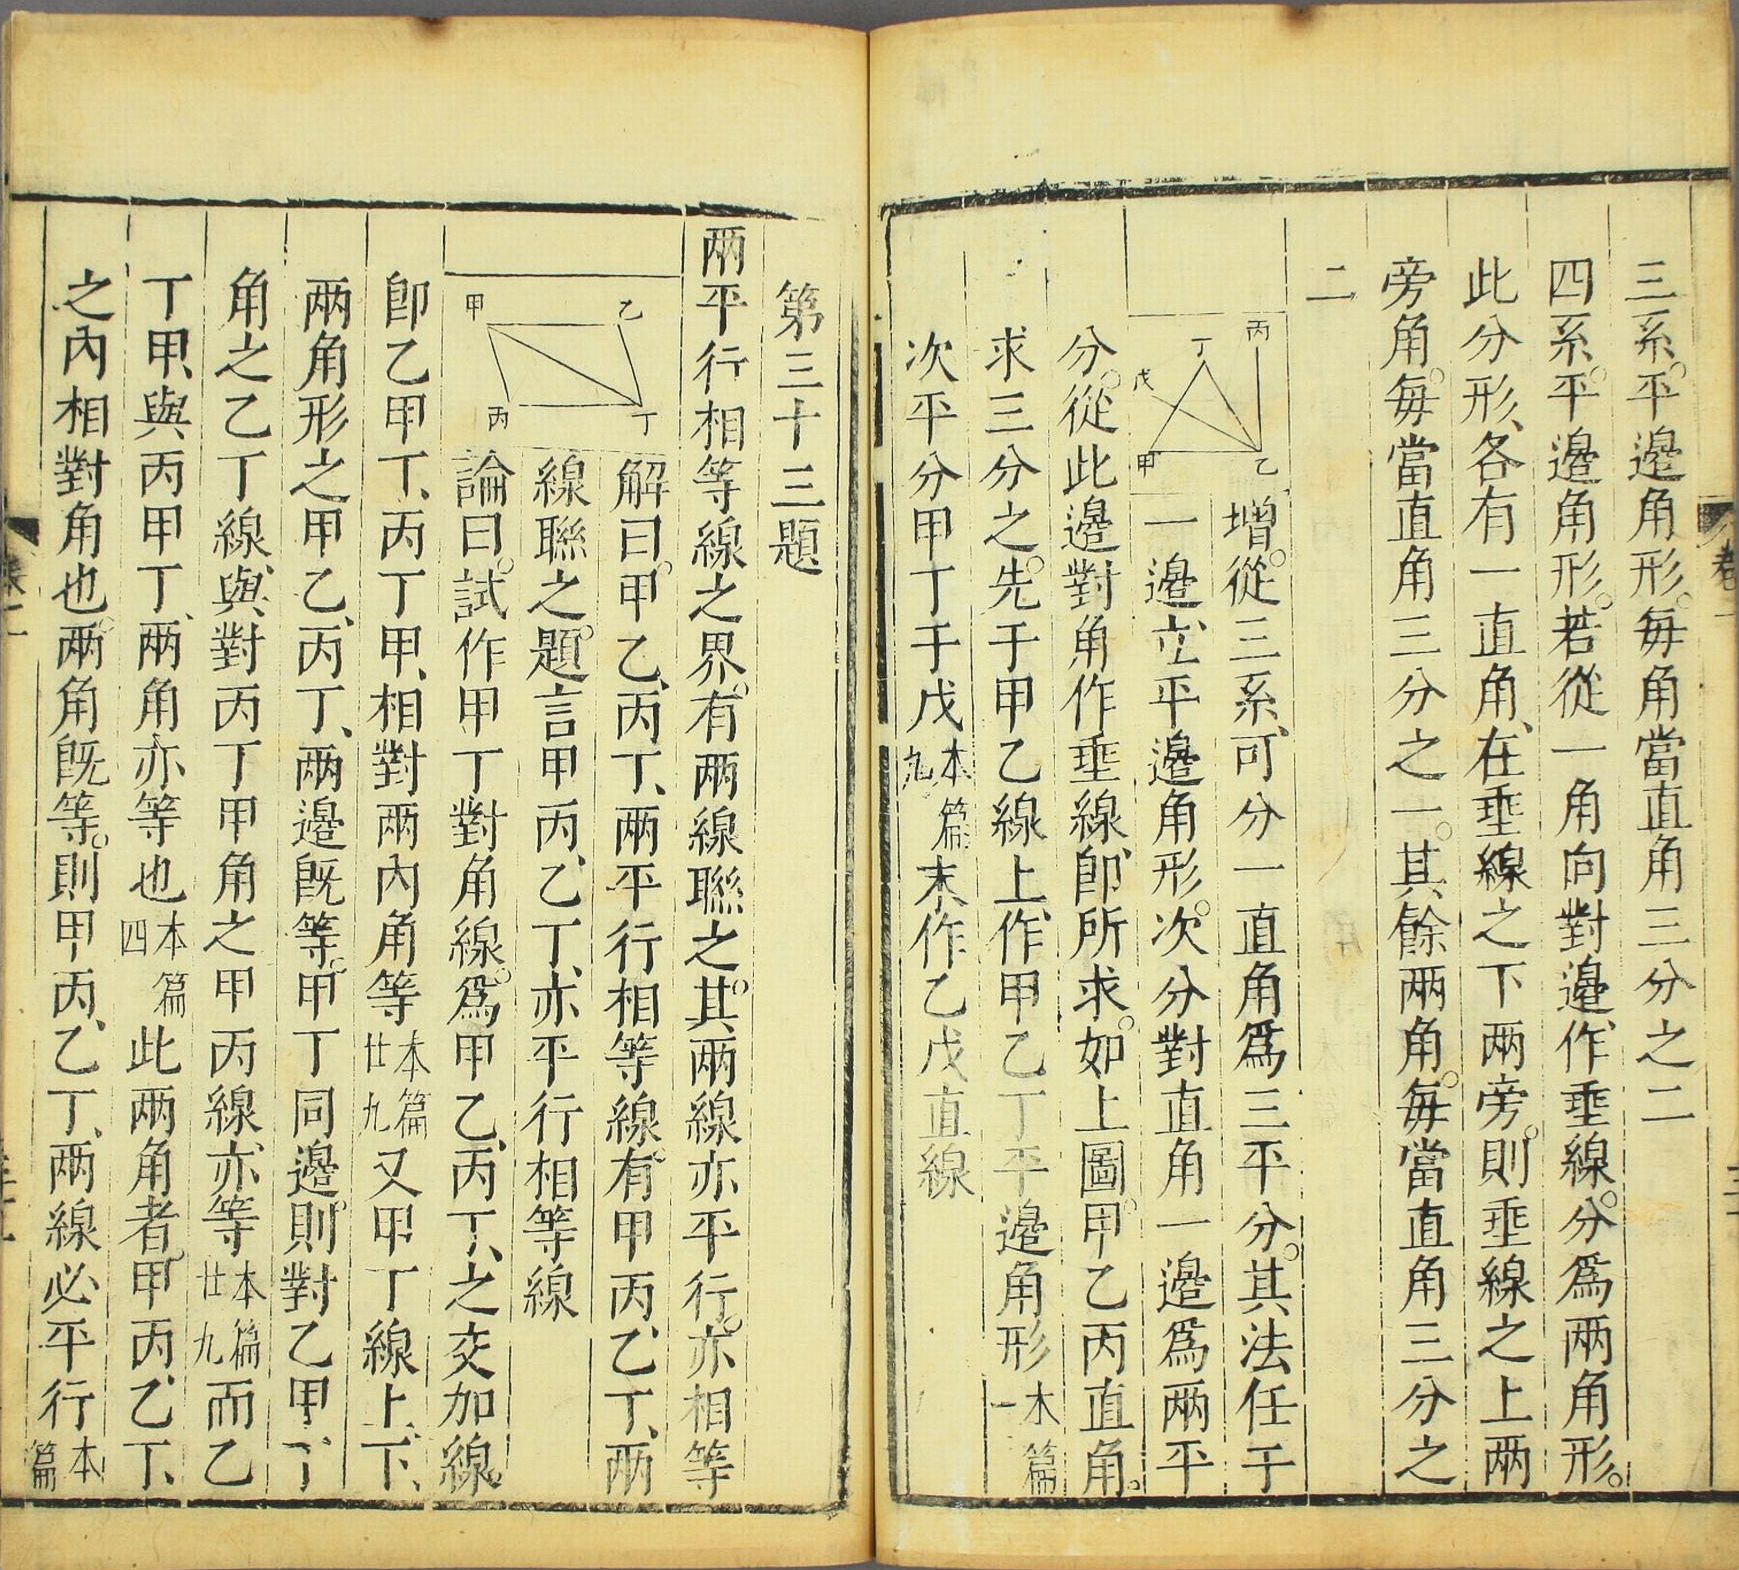 三系。平邊角形。每角當直角三分之二
四系。平邊角形。若從一角向對邊、作垂線。分爲兩角形。
此分形、各有一直角、在垂線之下兩旁。則垂線之上兩
旁角。每當直角三分之一。其餘兩角。每當直角三分之
二
丙
丁
戊
甲
乙
增。從三系、可分一直角爲三平分。其法任于
一邊、立平邊角形。次分對直角一邊爲兩平
分。從此邊對角作垂線、卽所求。如上圖。甲乙丙直角。
求三分之。先于甲乙線上、作甲乙丁平邊角形本篇一
次平分甲丁于戊本篇九末作乙戊直線
第三十三題
兩平行相等線之界。有兩線聯之。其兩線亦平行。亦相等
甲
乙
丙
丁
解曰。甲乙、丙丁、兩平行相等線。有甲丙、乙丁、兩
線聯之。題言甲丙、乙丁、亦平行相等線
論曰。試作甲丁對角線。爲甲乙、丙丁、之交加線。
卽乙甲丁、丙丁甲、相對兩內角等本篇廿九又甲丁線上、下、
兩角形之甲乙、丙丁、兩邊旣等。甲丁同邊。則對乙甲丁
角之乙丁線、與對丙丁甲角之甲丙線、亦等本篇廿九而乙
丁甲、與丙甲丁、兩角亦等也本篇四此兩角者。甲丙、乙丁、
之內相對角也。兩角旣等。則甲丙、乙丁、兩線必平行本篇
卷一
卷一